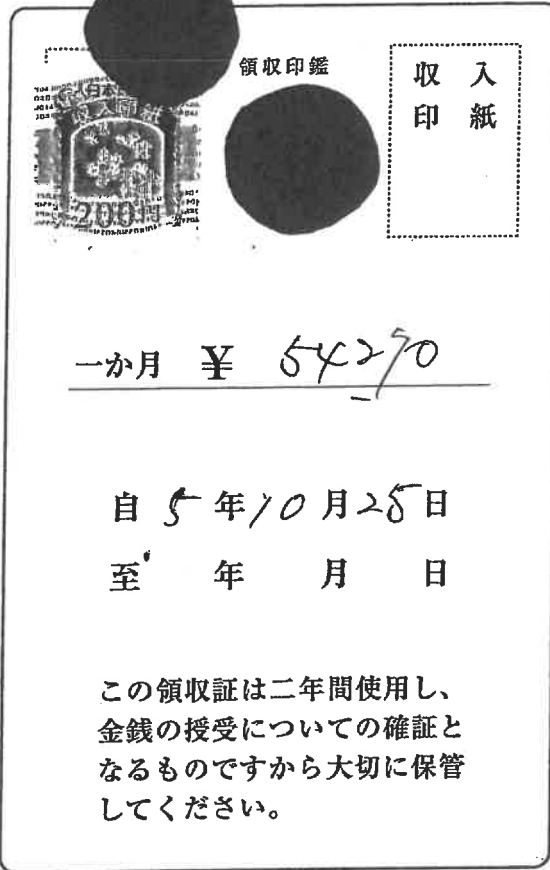 領収印鑑
収入
印紙
収入印紙
200円
一か月 ¥ 54270
自 5年10月25日
至 年 月 日
この領収証は二年間使用し、
金銭の授受についての確証と
なるものですから大切に保管
してください。